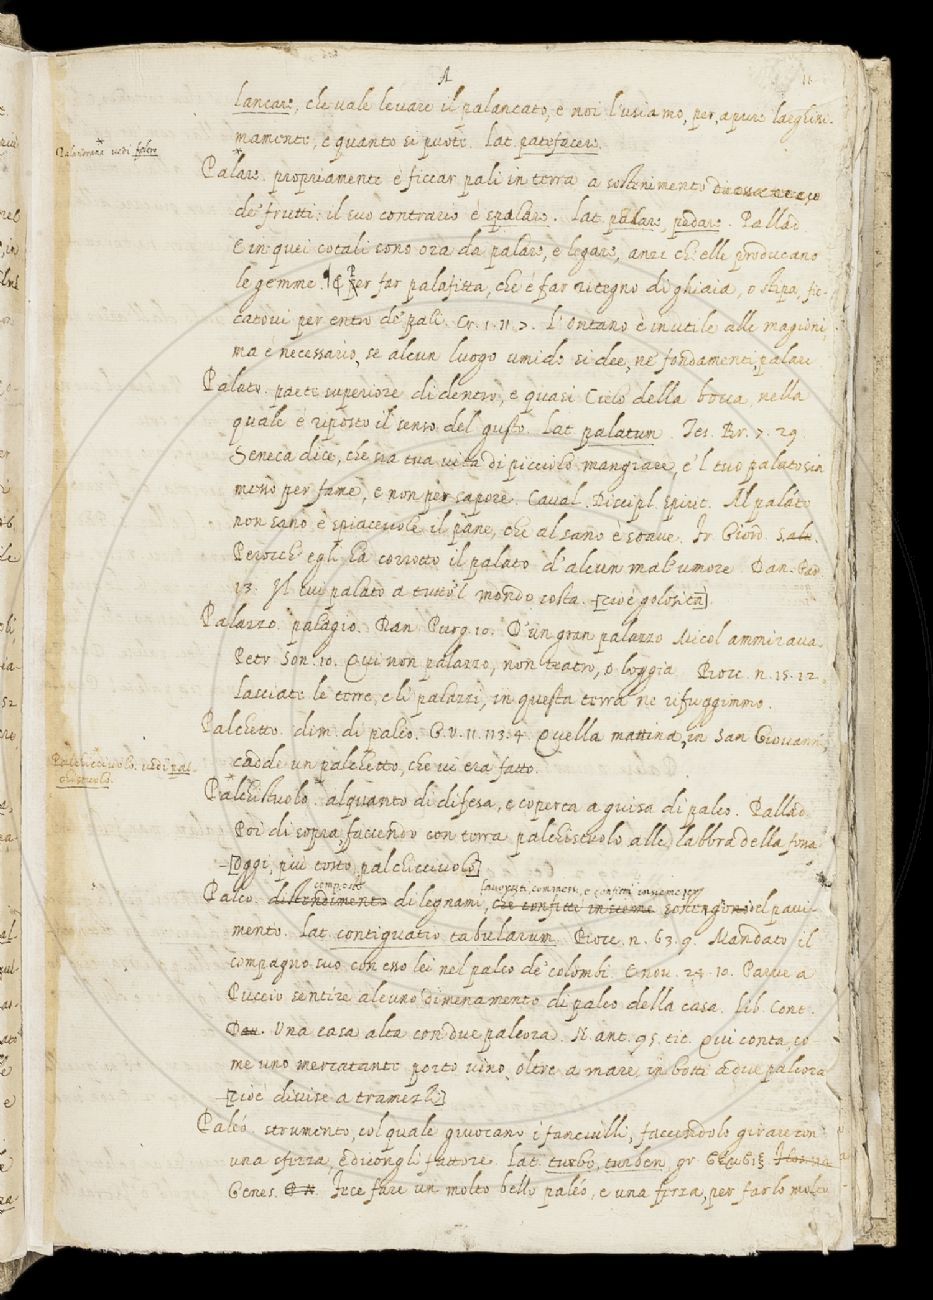 A
lancare, che vale levare il palancato, e noi l'usiamo, per, aprire larghissi-
mamente, e quanto si puote. Lat. patefacere.
vedi
Palare. propriamente è ficcar pali in terra a sostenimento
de' frutti: il suo contrario è spalare. Lat. palare, pedare. Pallad.
E in quei cotali sono ora da palare, e legare, anzi ch'elle producano
le gemme. ¶ Per far palafitta, che è far ritegno di ghiaia, o stipa, fic-
catovi per entro de' pali. Cr. 1. 11. 7. L'ontano è inutile alle magioni,
ma è necessario, se alcun luogo umido si dee, ne' fondamenti, palare
Palato. parte superiore di dentro, e quasi Cielo della bocca, nella
quale è riposto il senso del gusto. Lat. palatum. Tes. Br. 7. 29
Seneca dice, che sia tua vita di piccolo mangiare, e 'l tuo palato sia
mosso per fame, e non per sapore. Caval. Discipl. spirit. Al palato
non sano è spiacevole il pane, che al sano è soave. Fr. Giord. Salv.
Perocch' egli ha corrotto il palato d'alcun mal' umore. Dan. Par.
13. Il cui palato a tutto 'l mondo costa. [cioè golosità]
Palazzo. palagio. Dan. Purg. 10. D'un gran palazzo Micol ammirava.
Petr. Son. 10. Qui non palazzo, non teatro, o loggia. Bocc. n. 15. 12.
Lasciate le torre, e li palazzi, in questa terra ne rifuggimmo.
Palchetto. dim. di palco. G. V. 11. 113. 4. Quella mattina, in San Giovanni,
cadde un palchetto, che vi era fatto.
vedi pal-
chistuolo.
Palchistuolo. alquanto di difesa, e coperta a guisa di palco. Pallad.
Poi di sopra, faccendo con terra palchistuolo alle labbra della fossa
[Oggi, più tosto, palchicciuolo]
composto commessi, e confitti insieme per
Palco. distendimento di legnami, che confitti insieme sostengono del pavi-
mento. Lat. contignatio tabulatum. Bocc. n. 63. 9. Mandato il
compagno suo con esso lei nel palco de' colombi. E nov. 24. 10. Parve a
Puccio sentire alcuno dimenamento di palco della casa. Lib. Cont.
Una casa alta con due palcora. N. ant. 95. tit. Qui conta, co-
me uno mercatante portò vino, oltre a mare, in botti a due palcora
[cioè divise a tramezzo]
Paléo. strumento, col quale giuocano i fanciulli, faccendolo girare con
una sferza, e dicongli fattore. Lat. turbo, turben, gr.
Genes. Fece fare un molto bello paléo, e una ferza, per farlo molto